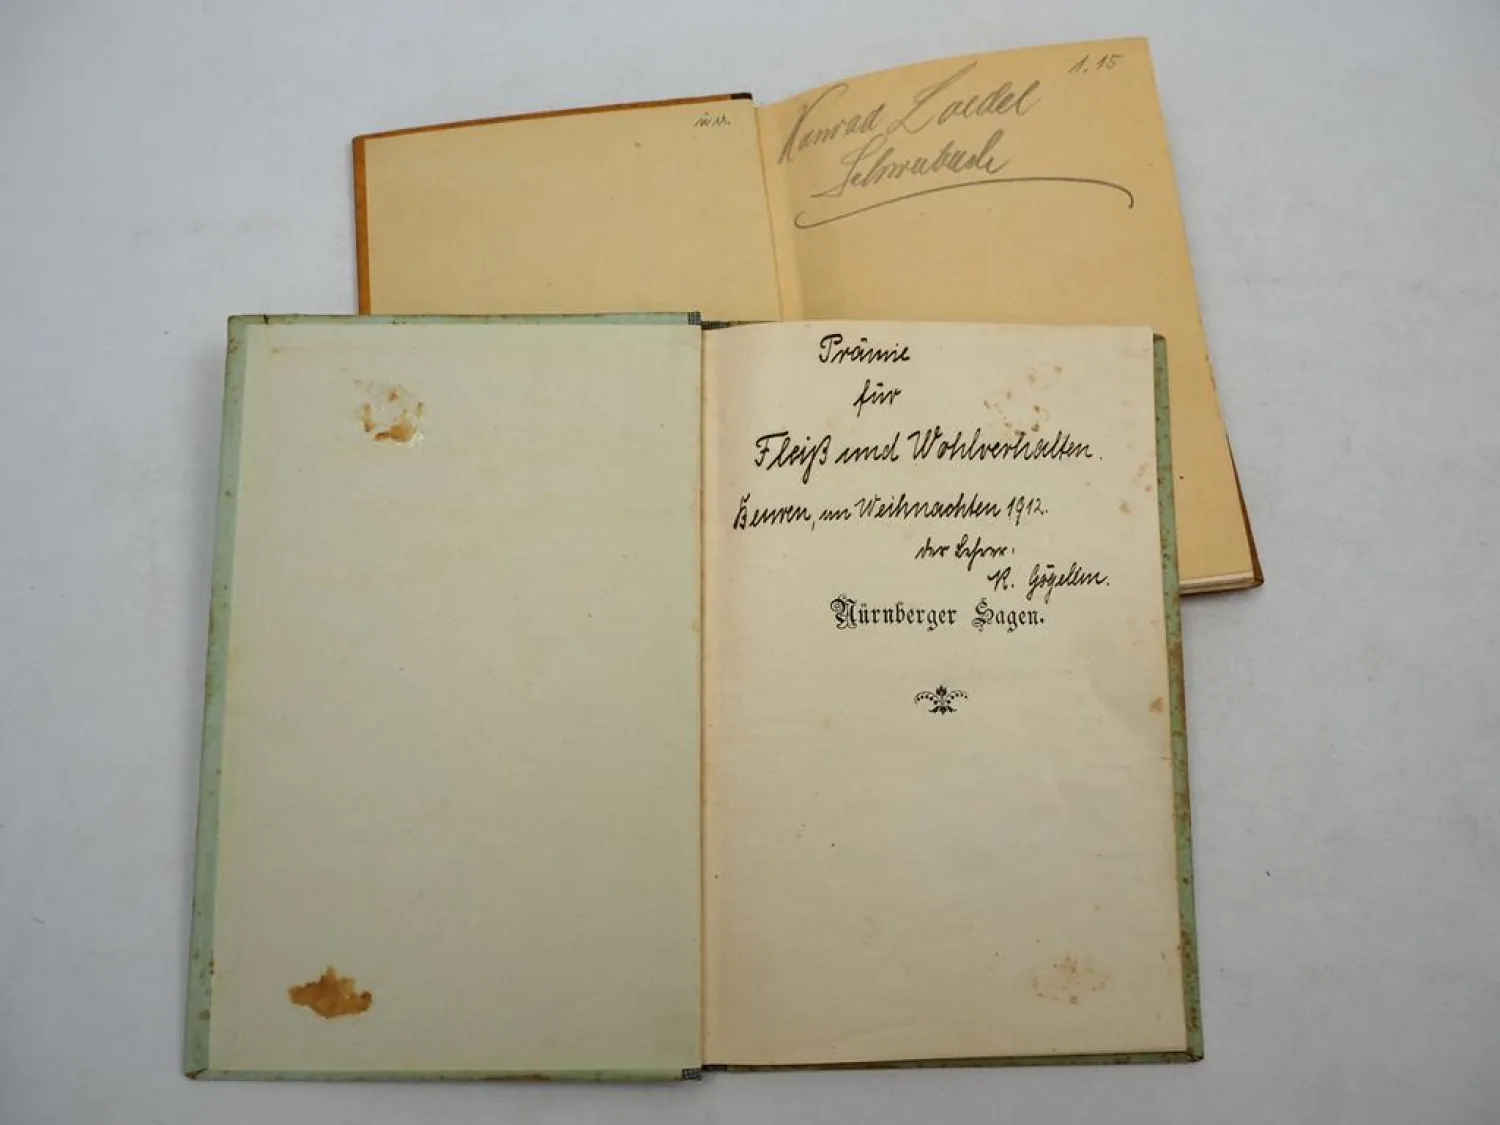 1.15
Konrad Loedel
Schwabach
Prämie
für
Fleiß und Wohlverhalten.
Beuren, an Weihnachten 1912.
der Lehrer.
Nürnberger Sagen.